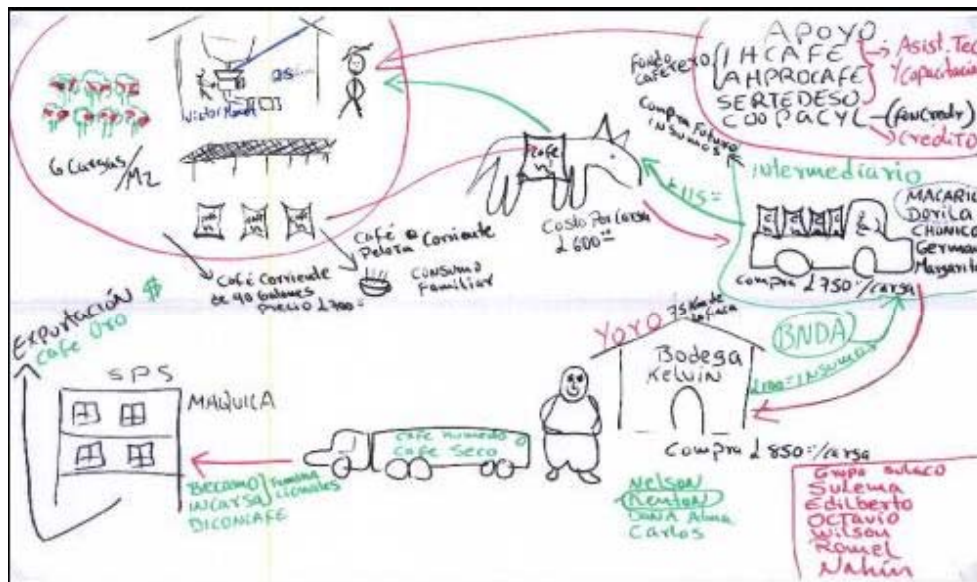 APOYO
IHCAFE
AHPROCAFE
SERTEDESO
COOPACYL
Fondo
cafetero
Asist. Tec
Y capacitac
(FonCredy)
crédito
compra Futuro
insumos
6 Cargas/Mz
cafe
Costo Por Carga
L 600
L 115=
intermediario
MACARIO
Dorila
CHONICO
German
Margarito
compra L 750=/carga
Café Corriente
de 90 Galones
Precio L 700=
Café
Pelota Corriente
consumo
Familiar
Exportación $
Cafe Oro
SPS
MAQUILA
Becamo
Incarsa
DICONCAFE
cafe Humedo o
cafe Seco
YORO
75 Km de
Bodega
Kelvin
BNDA
insumos
compra L 850=/carga
Nelson
Kenton
Doña Alma
Carlos
Grupo Sulaco
Sulema
Edilberto
Octavio
Wilson
Romel
Nahin